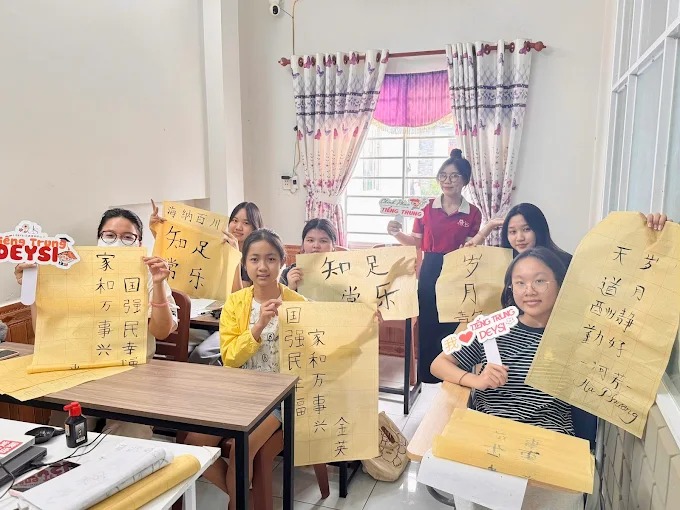 Tiếng Trung
DEYS!
家和万事兴
国强民幸
海纳百川
知足
常乐
知足
常乐
国强民幸福
家和万事兴
金英
Chinh Phục
TIẾNG TRUNG
岁
月
TIẾNG TRUNG
DEYS!
天道酬勤
岁月静好
河芳